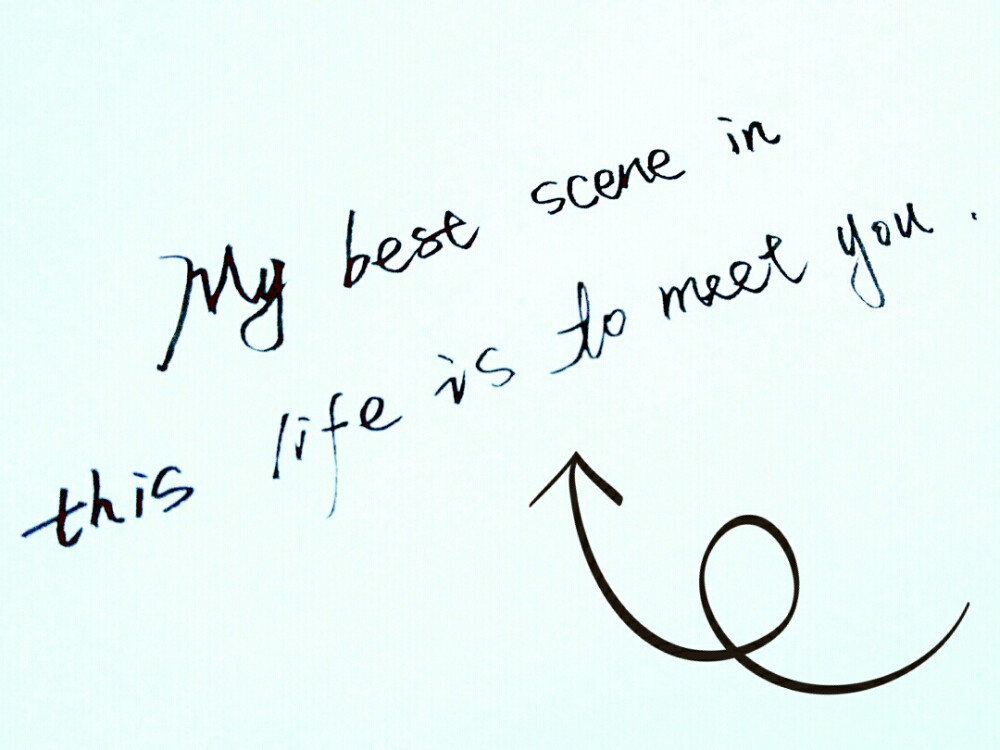 My best scene in
this life is to meet you.